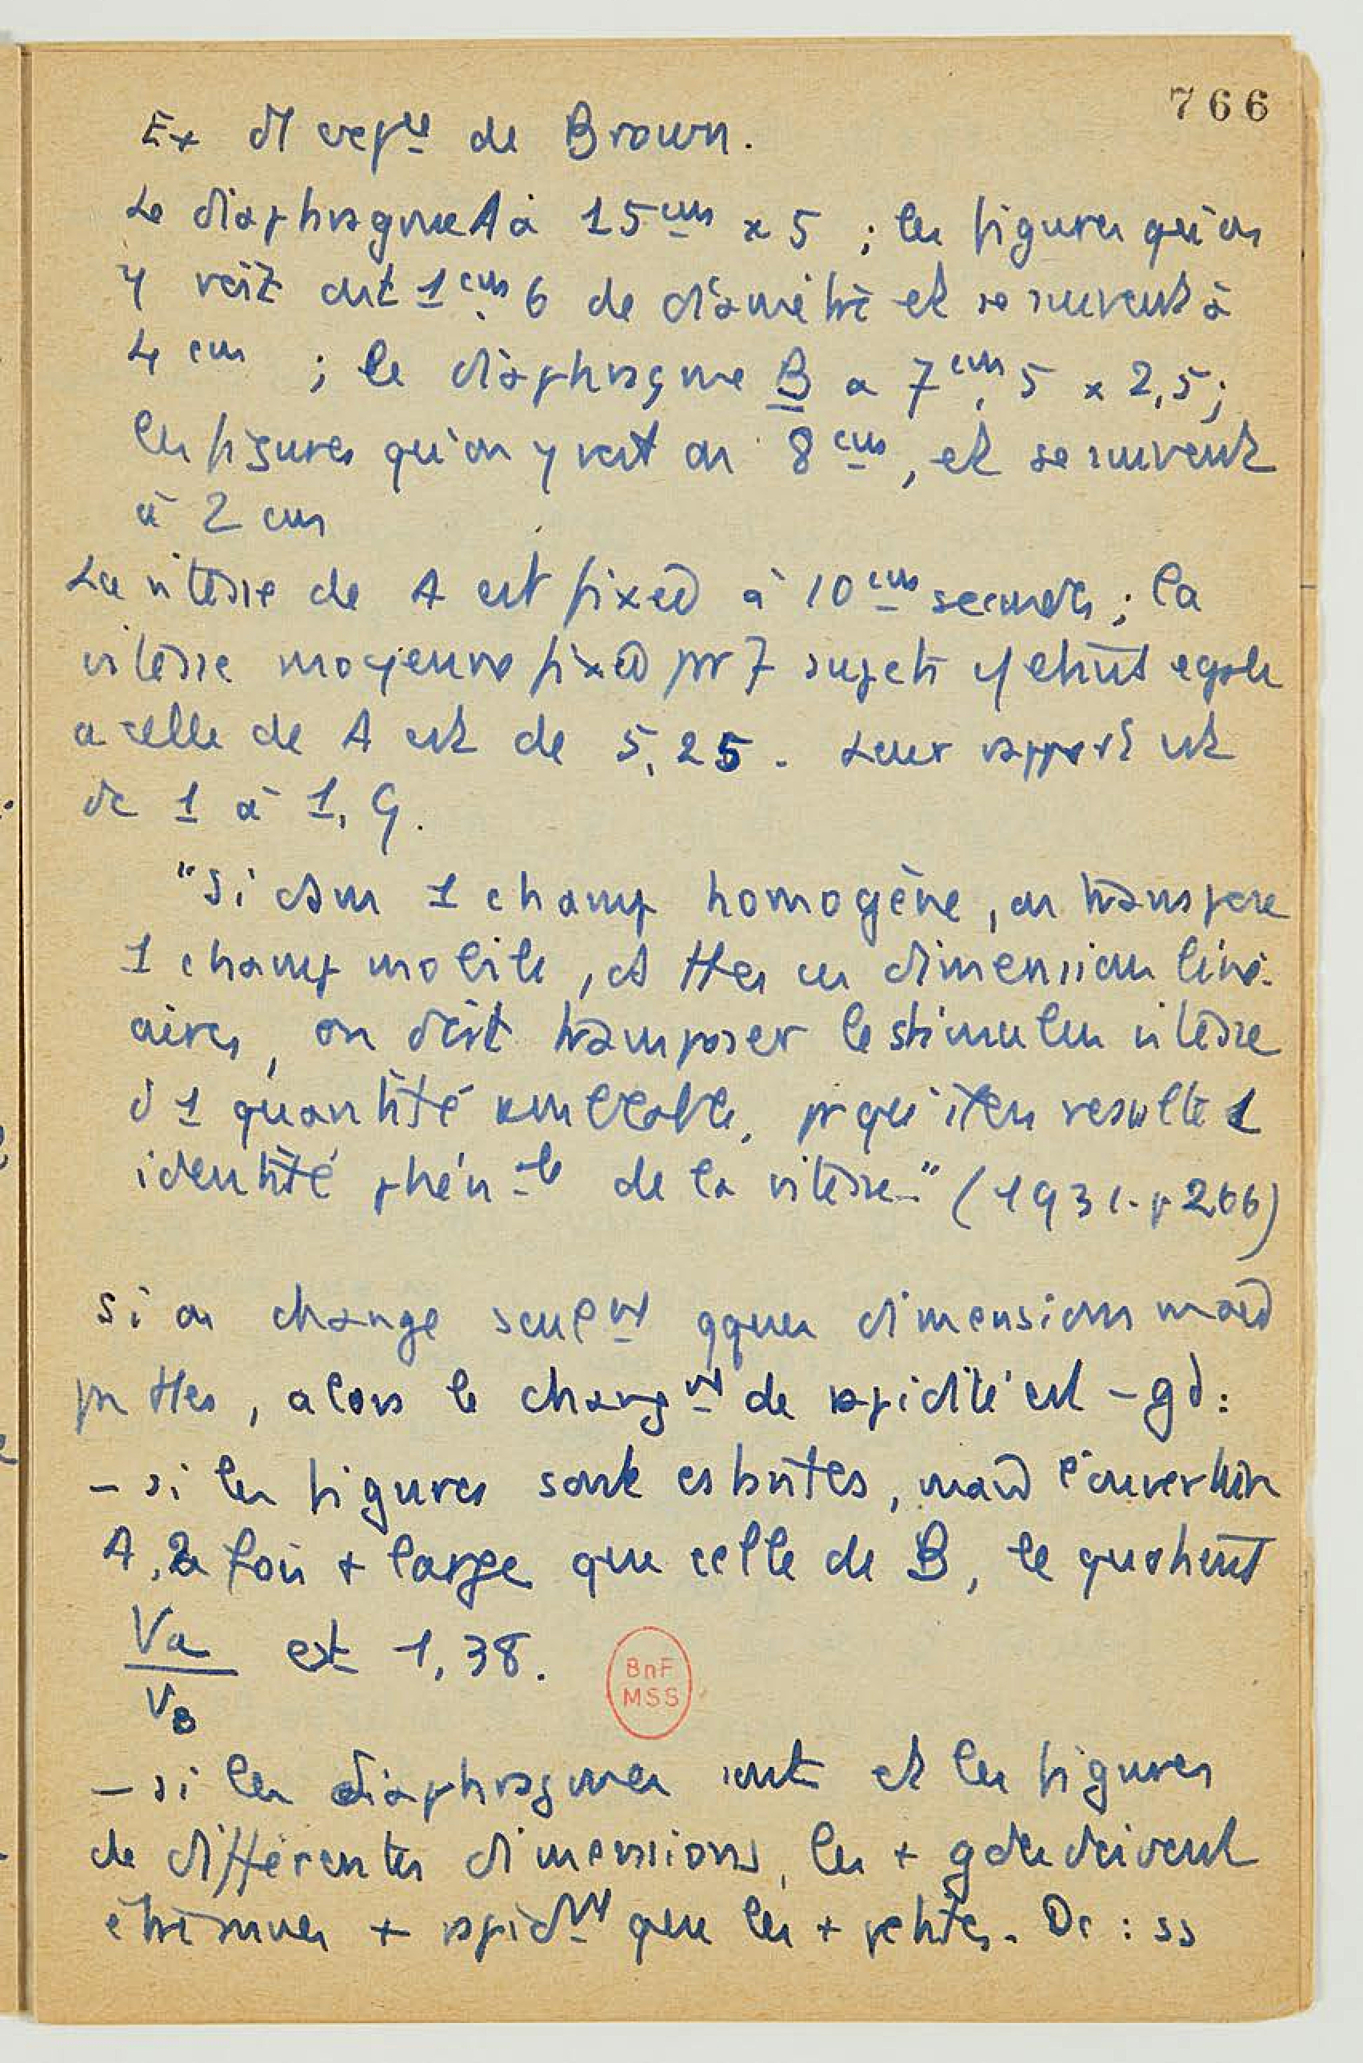 766
Ex d'1 expce de Brown.
Le diaphragme A a 15 cms x 5 ; les figures qu'on
y voit ont 1 cm, 6 de diamètre et se suivent à
4 cm ; le diaphragme B a 7 cm, 5 x 2,5 ;
les figures qu'on y voit on 8 cms, et se suivent
à 2 cm
La vitesse de A est fixée à 10 cms secondes ; la
vitesse moyenne fixée pr 7 sujets y étant égale
a celle de A est de 5,25. Leur rapport est
de 1 à 1,9.
"Si dans 1 champ homogène, on transpose
1 champ mobile, ds ttes ces dimensions liné-
aires, on doit transposer le stimulus vitesse
d'1 quantité semblable, pr qu'il en resulte 1
identité phén-le de la vitesse" (1931. p 266)
Si on change seulnt qques dimensions mais
pas ttes, alors le changnt de rapidité est - gd :
- si les figures sont es btes, mais l'ouverture
A, 2 fois + large que celle de B, le quotient
Va
VB
est 1,38.
BnF
MSS
- si les diaphragmes sont et les figures
de différentes dimensions, les + gdes doivent
être mues + rapidnt que les + petites. Dc : ss